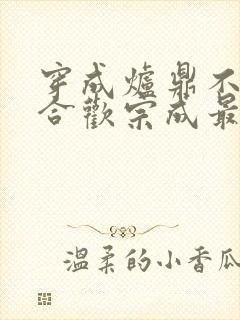 穿成爐鼎不
合歡宗成最
溫柔的小香瓜